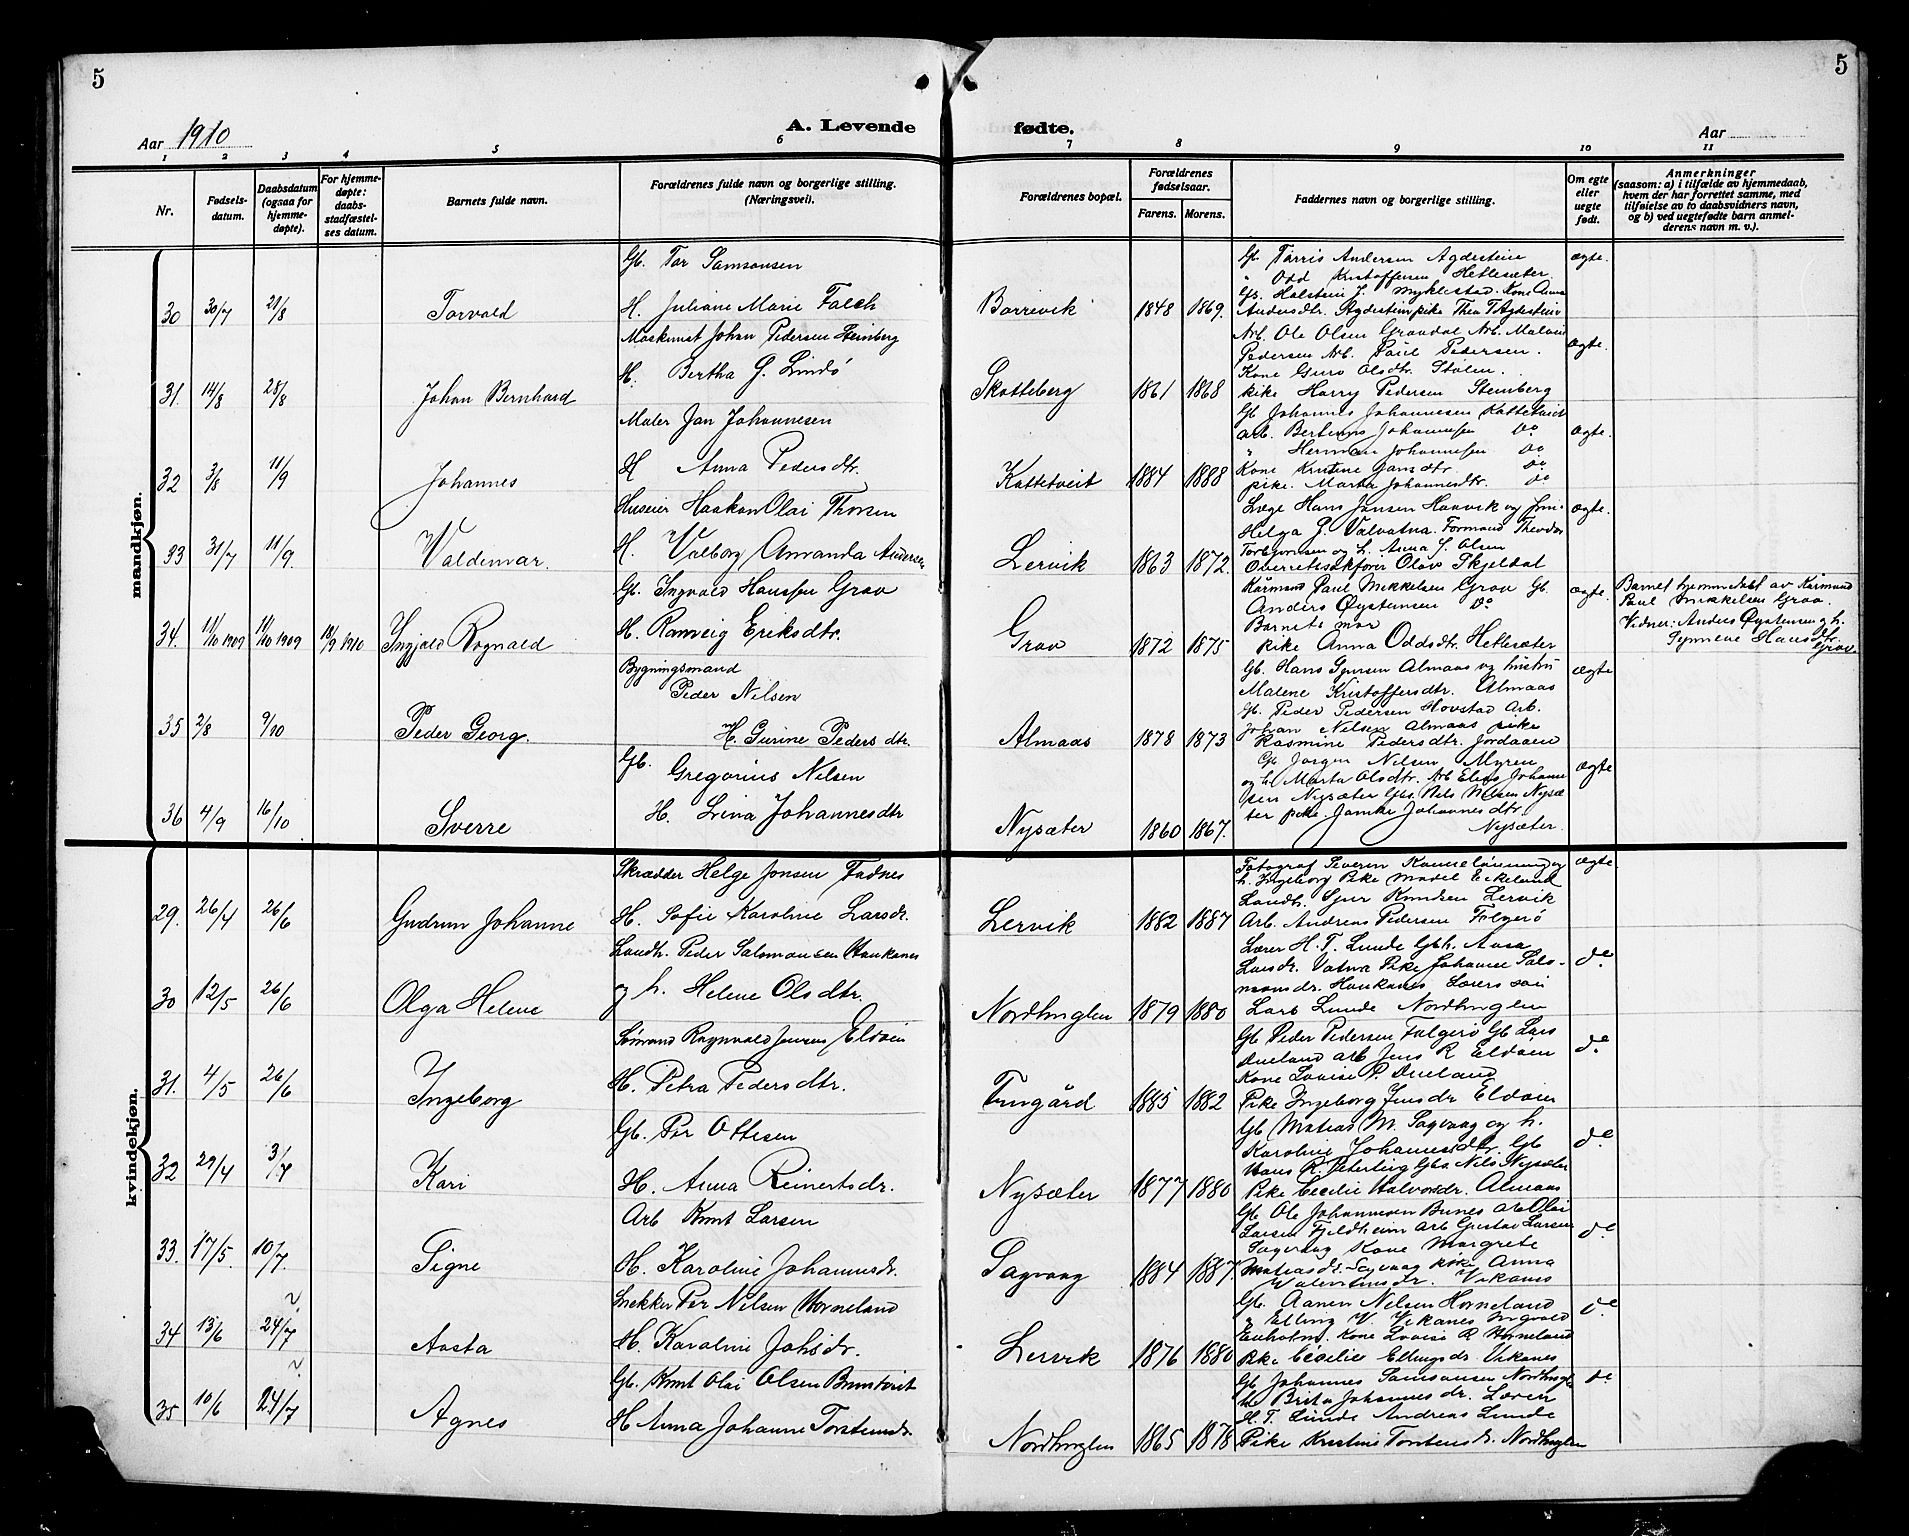 5
5
Aar 1910
A. Levende fødte.
Aar
1 2 3 4 5 6 7 8 9 10 11
Nr.
Fødsels-
datum.
Daabsdatum
(ogsaa for
hjemme-
døpte).
For hjemme-
døpte:
daabs-
stadfæstel-
ses datum.
Barnets fulde navn.
Forældrenes fulde navn og borgerlige stilling.
(Næringsvei).
Forældrenes bopæl.
Forældrenes
fødselsaar.
Farens. Morens.
Faddernes navn og borgerlige stilling.
Om egte
eller
uegte
født.
Anmerkninger
(saasom: a) i tilfælde av hjemmedaab,
hvem der har forrettet samme, med
tilføielse av to daabsvidners navn,
og b) ved uegtefødte barn anmel-
derens navn m. v.).
mandkjøn.
Gb. Tor Samsonsen
30 30/7 21/8 Torvald H. Juliane Marie Falch Borrevik 1848 1869.
Gb. Tørris Andersen Agdesteie
" Odd Kristoffersen Hetlesæter
Gb. Halstein J. Myklestad. Kone Anna
Andersdtr. Agdestein pike Thea T. Agdestein
ægte.
Maskinist Johan Pedersen Steinberg
H. Bertha G. Lindö
31. 14/8 28/8 Johan Bernhard Skotteberg 1861 1868
Arb. Ole Olsen Graadal Arb. Malvin
Pedersen Arb. Paul Pedersen.
Kone Guro Olsdtr. Stolen.
pike Harry Pedersen Steinberg
ægte.
Maler Jan Johannesen
32 3/8 11/9 Johannes H Anna Pedersdtr. Kattetveit 1884 1888
Gb Johannes Johannesen Kattetveit
arb. Bertinus Johannesen do
" Herman Johannesen do
Kone Kristine Jansdtr. do
pike. Marta Johannesdtr. do
ægte.
Huseier Haakon Olai Thorsen
33 31/7 11/9. Valdemar. H. Valborg Amanda Andersen Lervik 1863 1872.
Læge Hans Jansen Haavik og frue
Helga G. Valvatna. Formand Theodor
Torbjørnsen og h. Anna S. Olsen
Overretssakfører Olav Skjeldal
ægte.
Gb. Ingvald Hansen Grov
34. 11/10 1909 11/10 1909 18/9 1910 Ingjald Rognald H. Ranveig Eriksdtr. Grov 1872 1875
Kårmand Paul Mikkelsen Grov Gb.
Anders Øystensen do
Barnets mor
pike Anna Oddsdtr. Hetlesæter
ægte.
Barnet hjemmedøbt av Kårmand
Paul Mikkelsen Grov.
Vidner: Anders Øystensen og h.
Synneve Hansdtr.
Grov
Bygningsmand
Peder Nilsen
35 2/8 9/10 Peder Georg. H. Gurine Pedersdtr. Almaas 1878 1873
Gb. Hans Gjersen Almaas og hustru
Malene Kristoffersdtr. Almaas
Gb. Peder Pedersen Hovstad Arb.
Johan Nilsen Almaas pike
Rasmine Pedersdtr. Jordaaen
ægte
Gb. Gregorius Nilsen
36 4/9 16/10 Sverre H. Lina Johannesdtr Nysæter 1860 1867.
Gb Jørgen Nilsen Myren
og h. Marta Olsdtr. Arb Elias Johanne
sen Nysæter Gbs. Nils Nilsen Nysæ
ter pike. Johannesdtr.
Nysæter.
ægte
kvindekjøn.
Skrædder Helge Jonsen Fadnes
29. 26/4 26/6 Gudrun Johanne H. Sofie Karoline Larsdr. Lervik 1882 1887
Fotograf Severin Kanneløning og
h. Ingeborg Pike Madel Eikeland
Landh. Sjur Knudsen Lervik
Arb. Andreas Pedersen Folgerö
ægte
Landh. Peder Salomonsen Haukanes
30 12/5 26/6 Olga Helene og h. Helene Olsdtr. Nordhuglen 1879 1880
Lærer H. T. Lunde Gbh. Aasa
Larsdr. Vatna Pike Johanne Salo-
monsdr. Haukanes Lærers søn
Lars Lunde Nordhuglen
do.
Sömand Ragnvald Jensen Eldøen
31. 4/5 26/6 Ingeborg H. Petra Pedersdtr. Tungård 1885 1882
Gb Peder Pedersen Folgerö Gb Lars
Dueland arb Jens R Eldøen
Kone Lovise P. Dueland
Pike Ingeborg Jensdr Eldøen
do.
Gb. Per Ottesen
32 29/4 3/7 Kari H. Anna Reinertsdr. Nysæter 1877 1880
Gb Matias M. Sagvaag og h.
Karoline Johannesdtr. Gb
Hans R. Peterteig Gbs. Nils Nysæter
Pike Cecilie Halvorsdr. Almaas
do
Arb Knut Larsen
33. 17/5. 10/7. Signe H. Karoline Johannesdr. Sagvaag 1884 1887.
Gb. Ole Johannesen Bunes arb Olai
Larsen Fjeldheim arb Gustav Larsen
Sagvaag Kone Margrete
Matiasdr. Sagvaag Pike Anna
Valentinsdr. Vikanes
do
Snekker Per Nilsen Horneland
34 13/6 24/7 Aasta H. Karoline Johsdr. Lervik 1876 1880
Gb. Aanen Nilsen Horneland
" Elling V. Vikanes Ingvald
Enholm. Kone Lovise R Horneland
Pike Cecilie Ellingsdr. Vikanes
do
Gb. Knut Olai Olsen Bruntveit
35 10/6 24/7 Agnes H Anna Johanne Torsteinsdr. Nordhuglen 1865 1878
Gb Johannes Samsonsen Nordhuglen
h. Brita Johannesdr. Lærer
H. T. Lunde Andreas Lunde
Pike Kristine Torsteinsdr. Nordhuglen
do